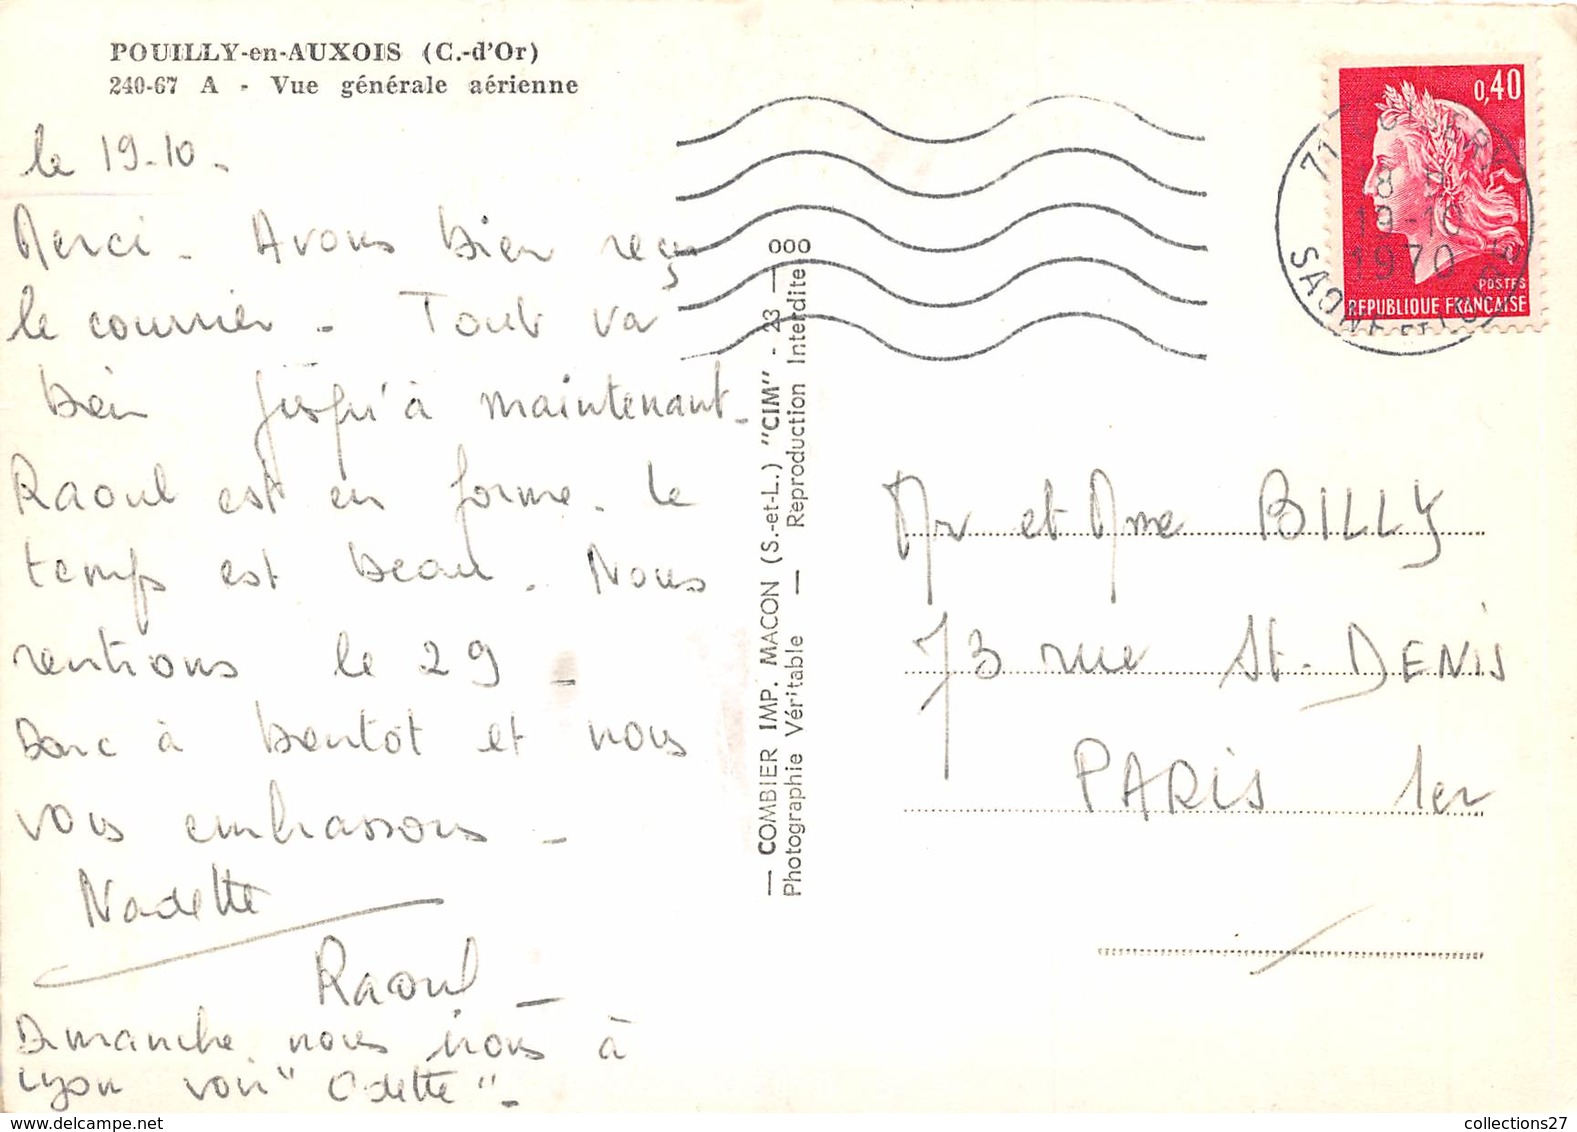 POUILLY-en-AUXOIS (C.-d'Or)
240-67 A - Vue générale aérienne
le 19-10-
Merci - Avons bien reçu
le courrier - Tout va
bien jusqu'à maintenant-
Raoul est en forme. le
temps est beau. Nous
rentrons le 29 -
Donc à bientôt et nous
vous embrassons -
Nadette
Raoul -
Dimanche nous irons à
Lyon voir "Odette" -
— COMBIER IMP. MACON (S.-et-L.) "CIM" - 23 — 000
Photographie Véritable — Reproduction Interdite
0,40
POSTES
REPUBLIQUE FRANÇAISE
71
19-10
1970
SAONE ET LOIRE
Mr et Mme BILLY
73 rue St. DENIS
PARIS 1er
collections27